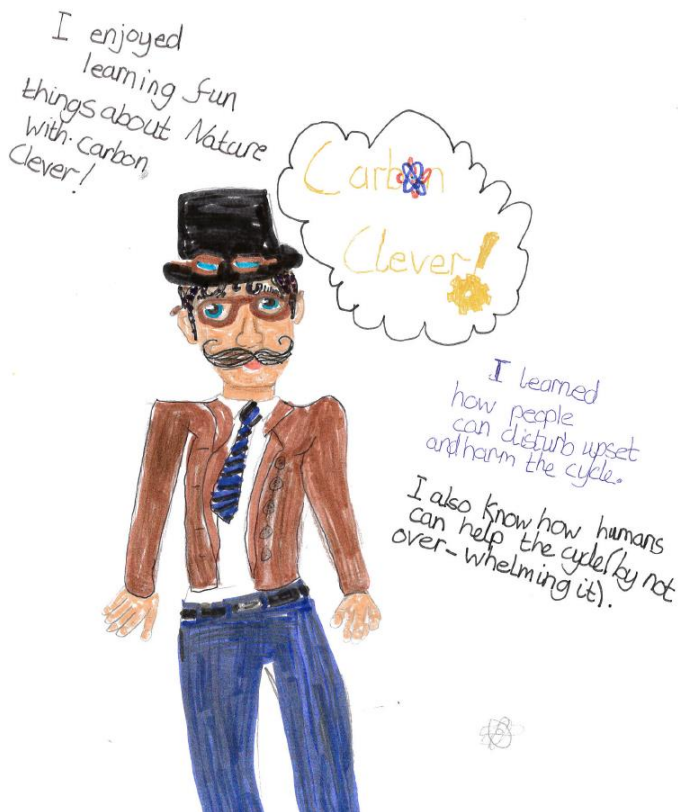 I enjoyed
learning fun
things about Nature
with carbon
Clever!
Carbon
Clever!
I learned
how people
can disturb upset
and harm the cycle.
I also know how humans
can help the cycle(by not
over-whelming it).